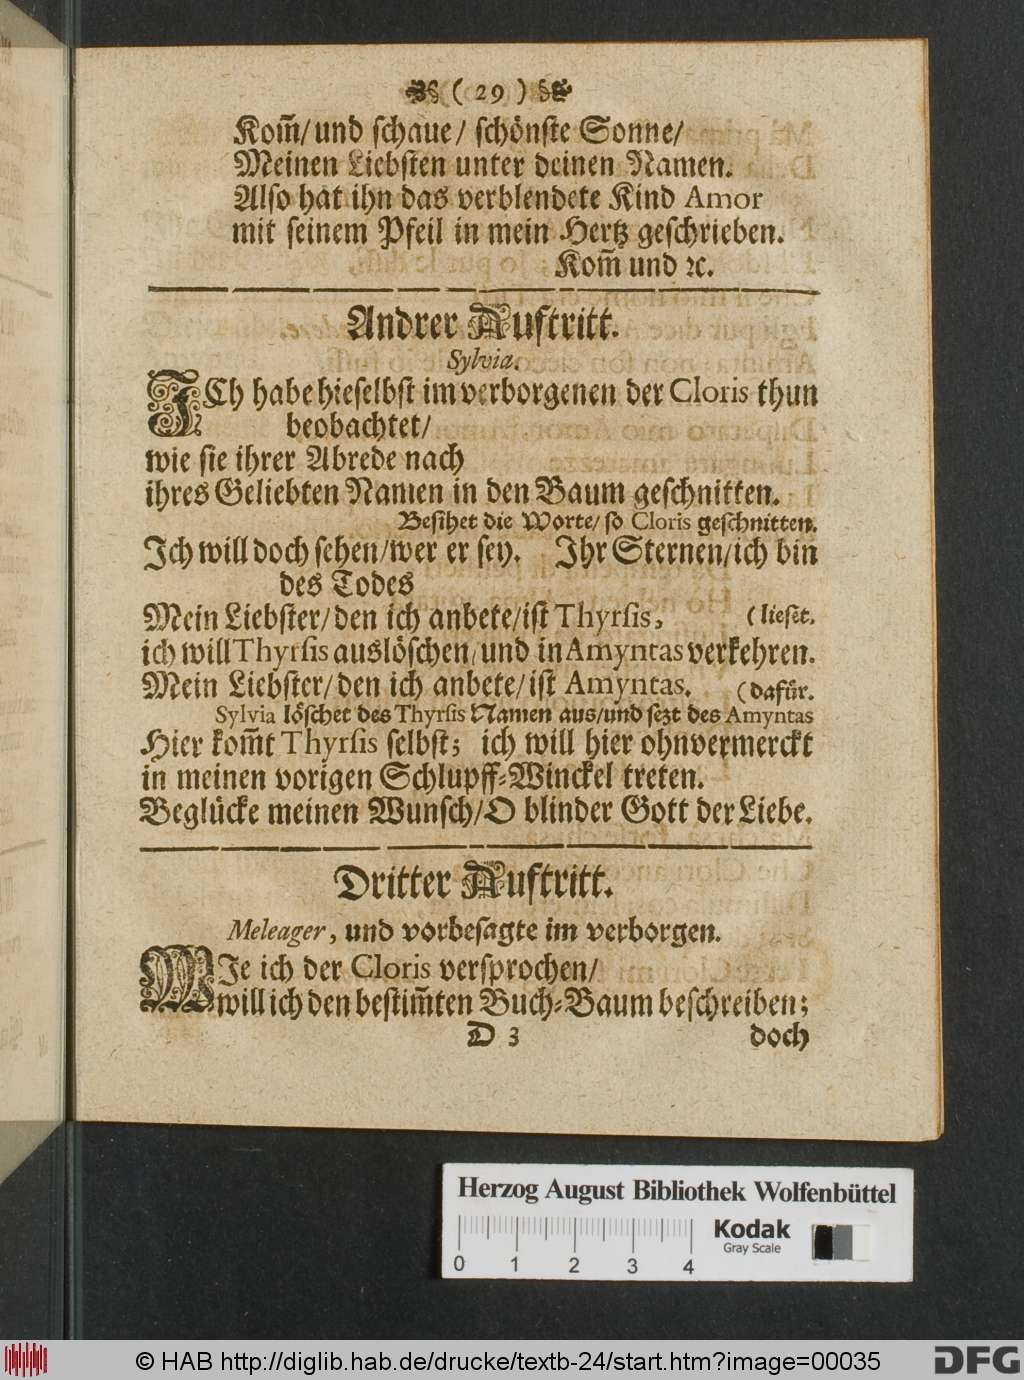 ( 29 )
Kom̃/ und schaue/ schönste Sonne/
Meinen Liebsten unter deinen Namen.
Also hat ihn das verblendete Kind Amor
mit seinem Pfeil in mein Hertz geschrieben.
Kom̃ und ꝛc.
Andrer Auftritt.
Sylvia.
ICh habe hieselbst im verborgenen der Cloris thun
beobachtet/
wie sie ihrer Abrede nach
ihres Geliebten Namen in den Baum geschnitten.
Besihet die Worte/ so Cloris geschnitten.
Ich will doch sehen/ wer er sey. Ihr Sternen/ ich bin
des Todes
Mein Liebster/ den ich anbete/ ist Thyrsis, (lieset.
ich will Thyrsis auslöschen/ und in Amyntas verkehren.
Mein Liebster/ den ich anbete/ ist Amyntas. (dafür.
Sylvia löschet des Thyrsis Namen aus/ und sezt des Amyntas
Hier kom̃t Thyrsis selbst; ich will hier ohnvermerckt
in meinen vorigen Schlupff-Winckel treten.
Beglücke meinen Wunsch/ O blinder Gott der Liebe.
Dritter Auftritt.
Meleager, und vorbesagte im verborgen.
WIe ich der Cloris versprochen/
will ich den bestim̃ten Buch-Baum beschreiben;
D 3 doch
Herzog August Bibliothek Wolfenbüttel
Kodak
Gray Scale
0 1 2 3 4
© HAB http://diglib.hab.de/drucke/textb-24/start.htm?image=00035
DFG